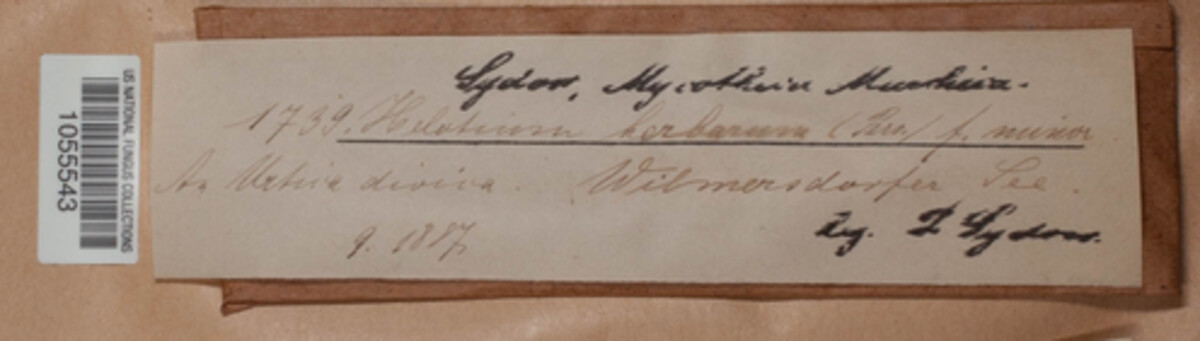 US NATIONAL FUNGUS COLLECTIONS
1055543
Sydow, Mycotheca Marchica.
1739. Helotium herbarum (Pers.) f. minor
An Urtica dioica. Wilmersdorfer See.
9. 1887
leg. P. Sydow.